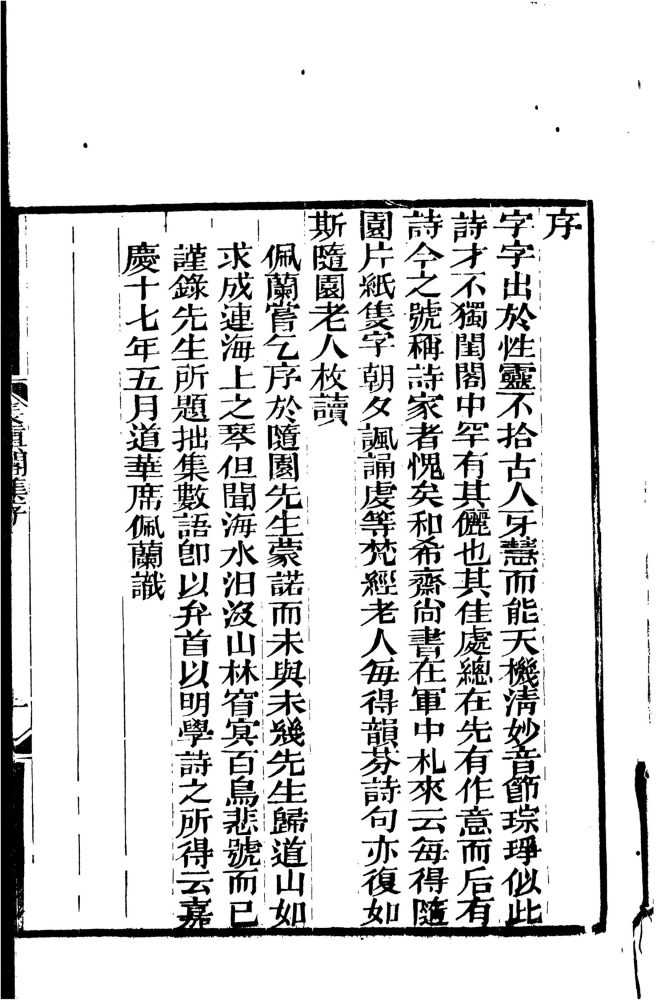 序
字字出於性靈不拾古人牙慧而能天機清妙音節琮琤似此
詩才不獨閨閣中罕有其儷也其佳處總在先有作意而后有
詩今之號稱詩家者愧矣和希齋尚書在軍中札來云每得隨
園片紙隻字朝夕諷誦虔等梵經老人每得韻芬詩句亦復如
斯隨園老人枚讀
佩蘭嘗乞序於隨園先生蒙諾而未與未幾先生歸道山如
求成連海上之琴但聞海水汨沒山林窅冥百鳥悲號而已
謹錄先生所題拙集數語卽以弁首以明學詩之所得云嘉
慶十七年五月道華席佩蘭識
長眞閣集序